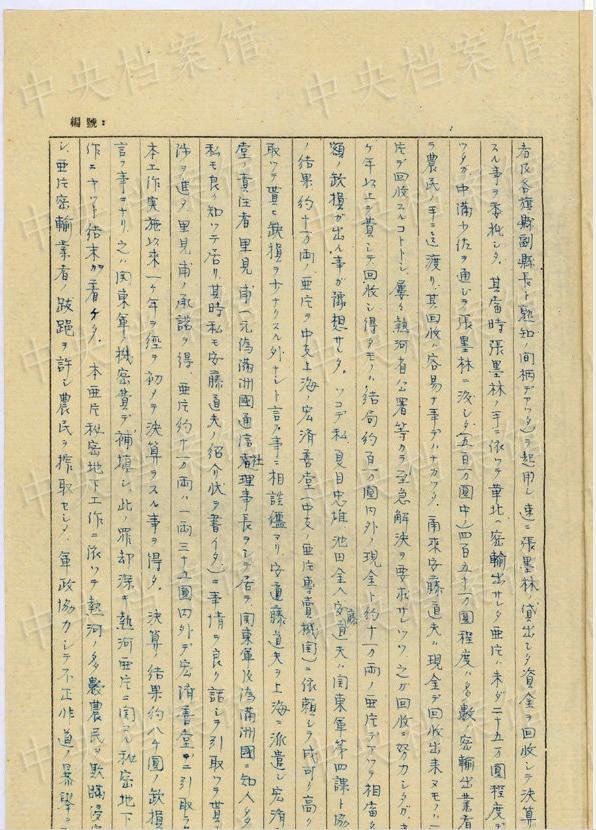 編號：
者及各旗縣副縣長ト熟知ノ間柄デアツタ)ヲ起用シ速ニ張墨林貸出シタ資金ヲ回収シテ決算
スル事ヲ委托シタ。其当時張墨林ノ手ニ依ツテ華北ヘ密輸出サレタ亜片ハ未ダ二十五万圓程度デ
ツタガ中満少佐ヲ通シテ張墨林ニ渡シタ(五百万圓中)四百五十万圓程度ハ多数密輸出業者
ヲ農民ノ手ニ迄渡リ其回収ハ容易ナ事デハナカツタ。爾来安藤道夫ハ現金デ回収出来ヌモノハ
片デ回収スルコトトシ、屡々熱河省公署等カラ至急解決ヲ要求サレツツ之ガ回収ニ努力シタガ
ケ年以上ヲ費シテ回収シ得タモノハ結局約百万圓内外ノ現金ト約十一万両ノ亜片デアツタ相当多
額ノ欠損ガ出ル事ガ予想サレタ。ソコデ私夏目忠雄、池田金人安藤道夫ハ関東軍第四課ト協
ノ結果約十一万両ノ亜片ヲ中支上海ノ宏済善堂(中支ノ亜片専賣機関)ニ依頼シテ成可ク高ク
取ツテ貰ヒ欠損ヲ少ナクスル外ナシト言フ事ニ相談纏マリ安道藤道夫ヲ上海ニ派遣シ宏済
堂ノ責任者里見甫(元偽満洲國通信社理事長ヲシテ居テ関東軍及偽満洲國ニ知人多ク
私モ良ク知ツテ居リ其時私モ安藤道夫ノ紹介状ヲ書イタ)ニ事情ヲ良ク話シテ引取ツテ貰フ
渉ヲ進メ里見甫ノ承諾ヲ得、亜片約十一万両ハ一両三十五圓内外デ宏済善堂ニ引取ラ
本工作実施以来一ケ年ヲ経テ初メテ決算ヲスル事ヲ得タ。決算ノ結果約八十圓ノ欠損
言フ事ニナリ、之ハ関東軍ノ機密費デ補填シ、此ノ罪却深キ熱河亜片ニ関スル秘密地下
作ニヤツト結末ガ着ケタ。本亜片秘密地下工作ニ依ツテ熱河ノ多数農民ヲ欺瞞
シ、亜片密輸業者ノ跋跪ヲ許シ農民ヲ搾取セシメ、軍政協力シテ不正非道ノ暴挙ヲ